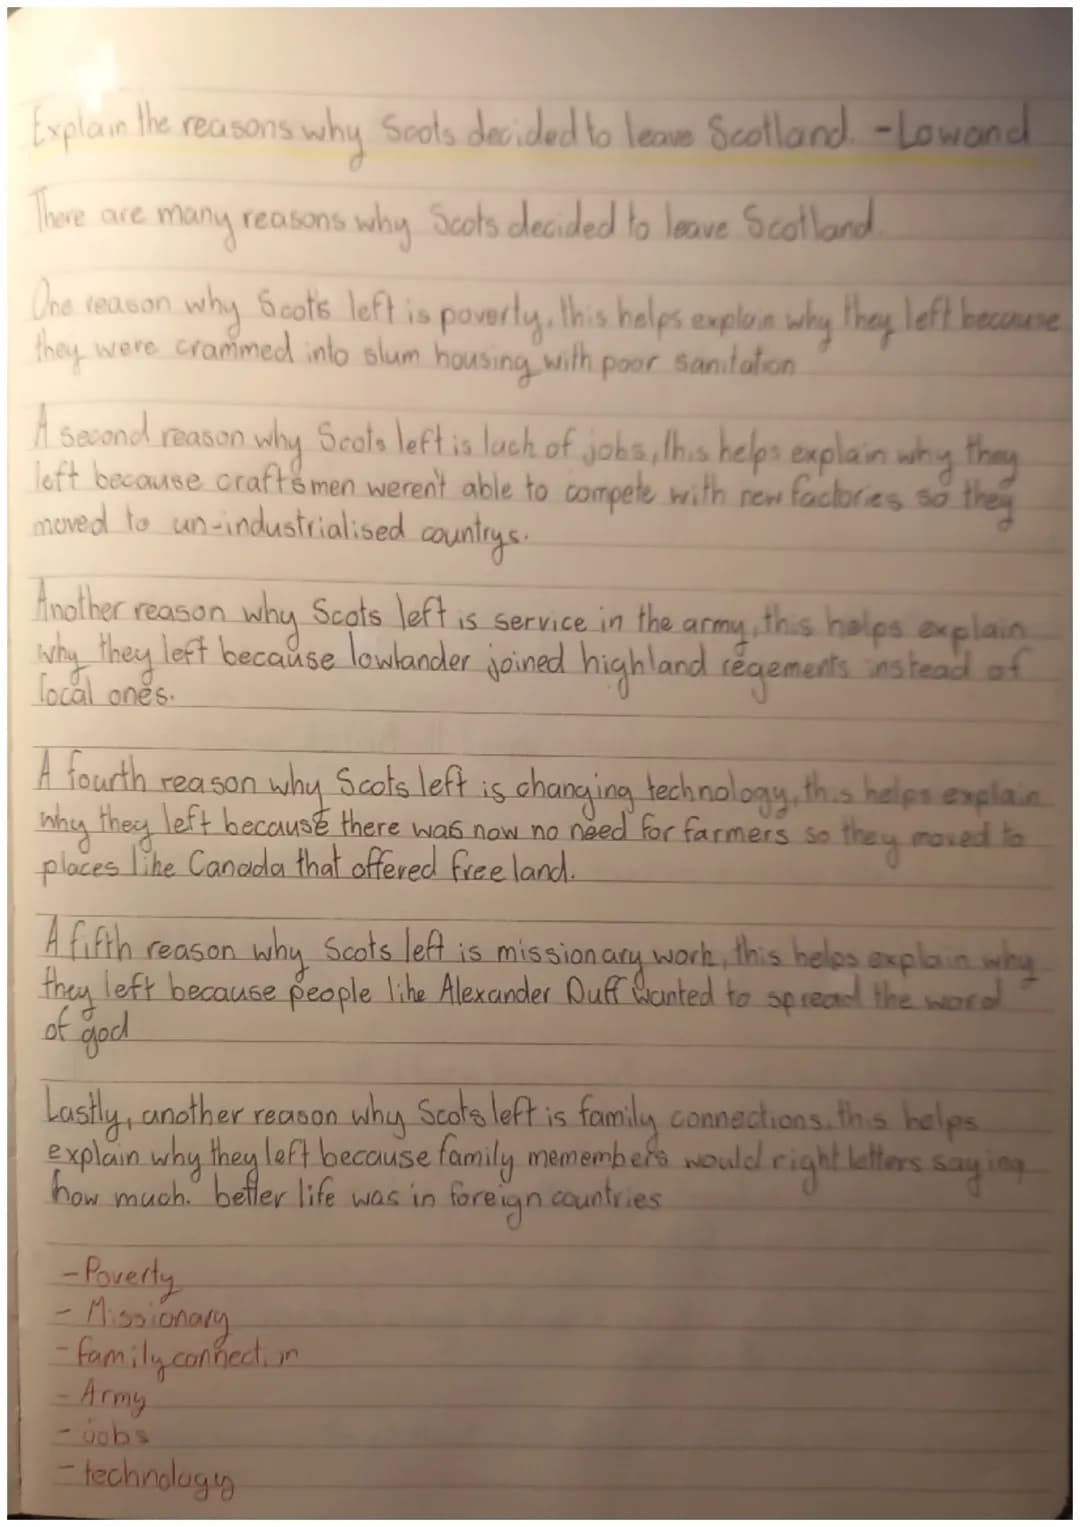 Explain the reasons why Scots decided to leave Scotland. -Lowand
There are many reasons why Scots decided to leave Scotland
One reason why Scot's left is poverty, this helps explain why they left because
they were crammed into slum housing with poor sanitation
A second reason why Scots left is lack of jobs, this helps explain why they
left because craftsmen weren't able to compete with new factories so they
moved to un-industrialised countrys.
Another reason why Scots left is service in the army, this helps explain
why they left because lowlander joined highland regements instead of
local ones.
A fourth reason why Scots left is changing technology, this helps explain
why they left because there was now no need for farmers so they moved to
places like Canada that offered free land.
A fifth reason why Scots left is missionary work, this helps explain why
they left because people like Alexander Duff wanted to spread the word
of god
Lastly, another reason why Scots left is family connections, this helps
explain why they left because family memembers would right letters saying
how much. better life was in foreign countries
- Poverty
- Missionary
- family connection
- Army
- jobs
- technology